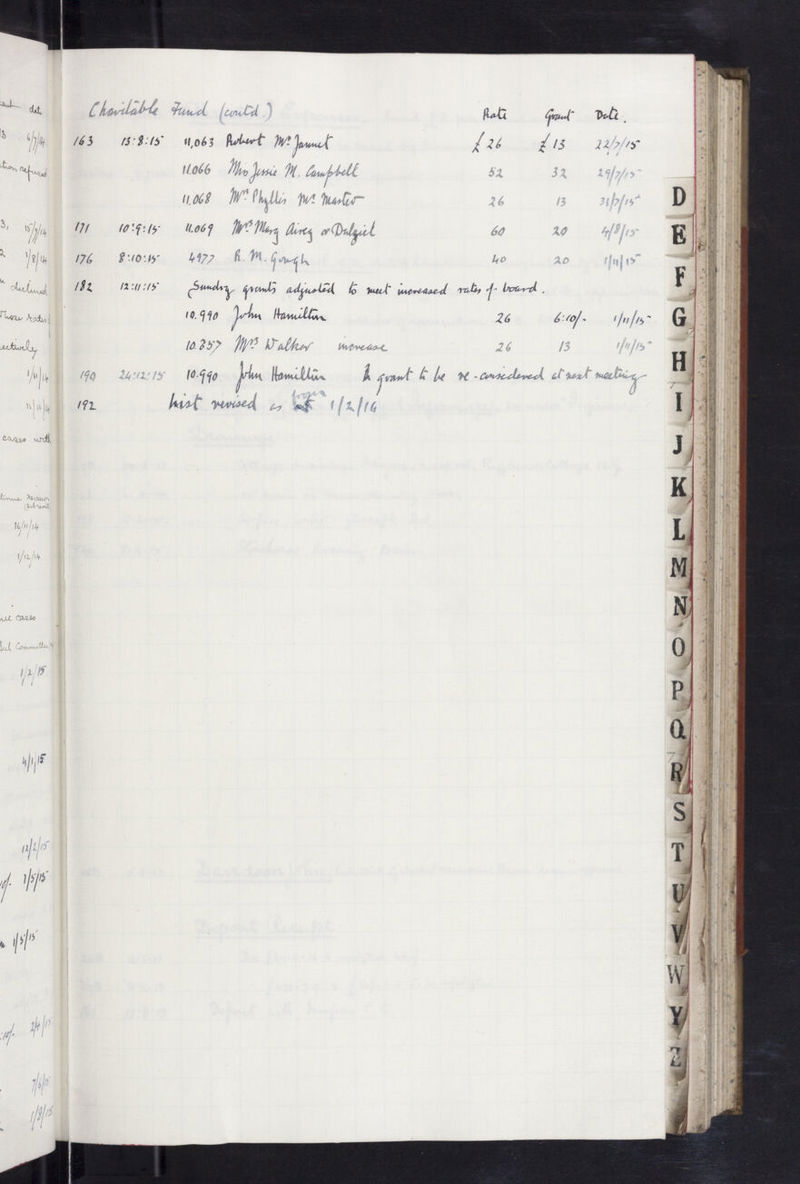 Charitable Fund (contd.) Rate Grant Date.
163 13:8:15 11,063 Robert Mc Jannet £26 £13 22/7/15
11.066 Mrs Jessie M. Campbell 52 32 29/7/15
11,068 Mrs Phyllis Mc Master 26 13 31/7/15
171 10:9:15 11.069 Mrs Mary Airey or Dalziel 60 20 4/8/15
176 8:10:15 4977 R. M. Gough 40 20 1/11/15
182 12:11:15 Sundry grants adjusted to meet increased rates of board.
10.990 John Hamilton 26 6:10/- 1/11/15
10.357 Mrs Walker increase 26 13 1/11/15
190 24:12:15 10.990 John Hamilton grant to be re-considered at next meeting
192 List revised as from 1/2/16
date
6/7/14
15/7/14
1/8/14
declined
cases with
1/12/14
cases
1/2/15
4/1/15
12/2/15
1/5/15
1/5/15
D
E
F
G
H
I
J
K
L
M
N
O
P
Q
R
S
T
U
V
W
Y
Z